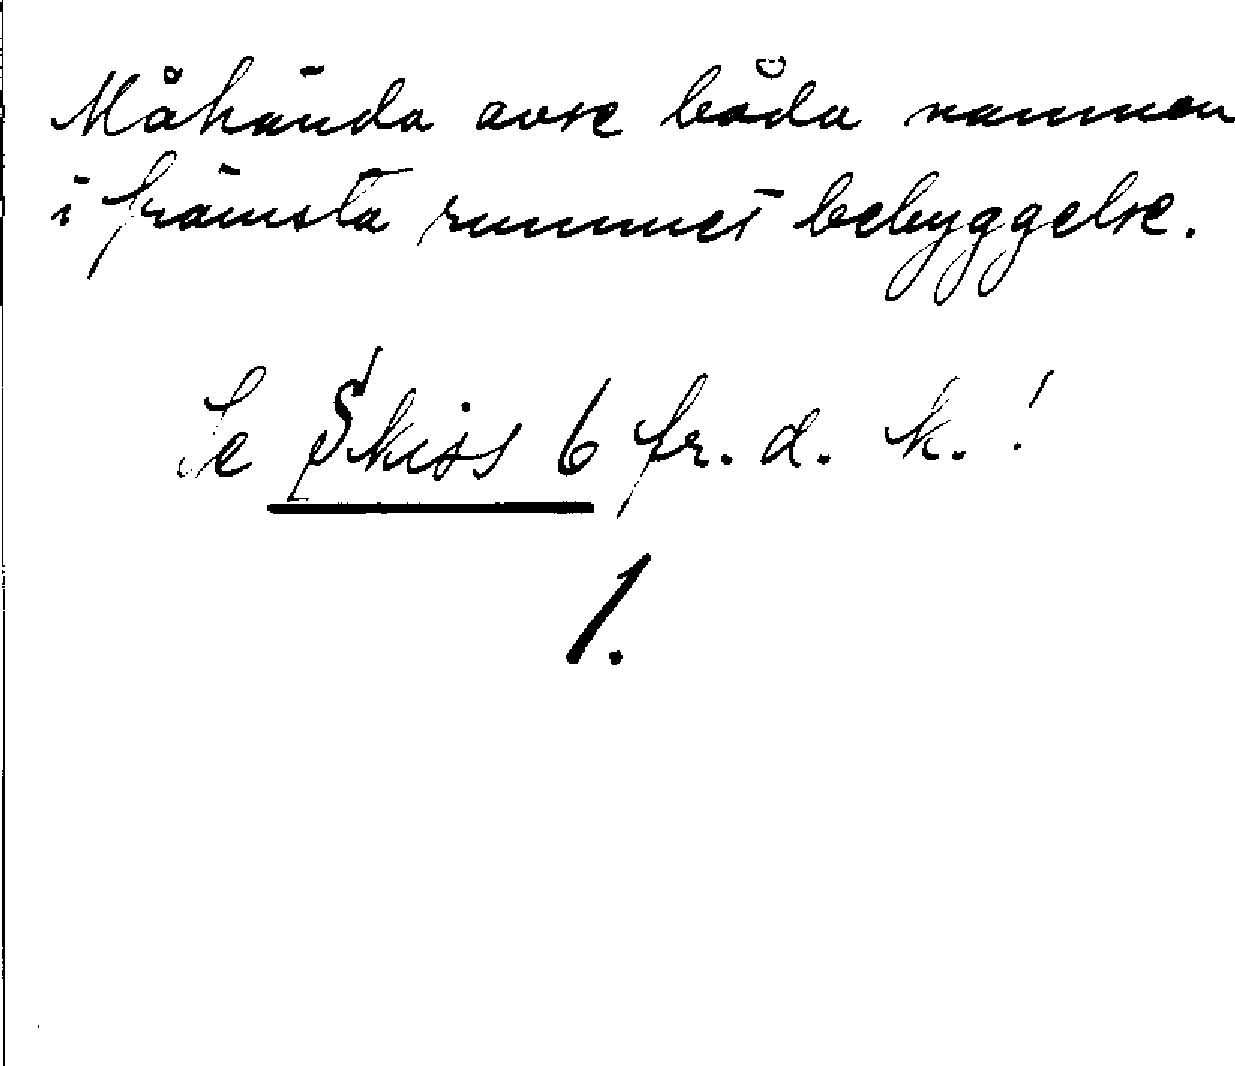 Måhända avse båda namnen
i främsta rummet bebyggelse.
Se Skiss 6 fr. d. k.!
1.